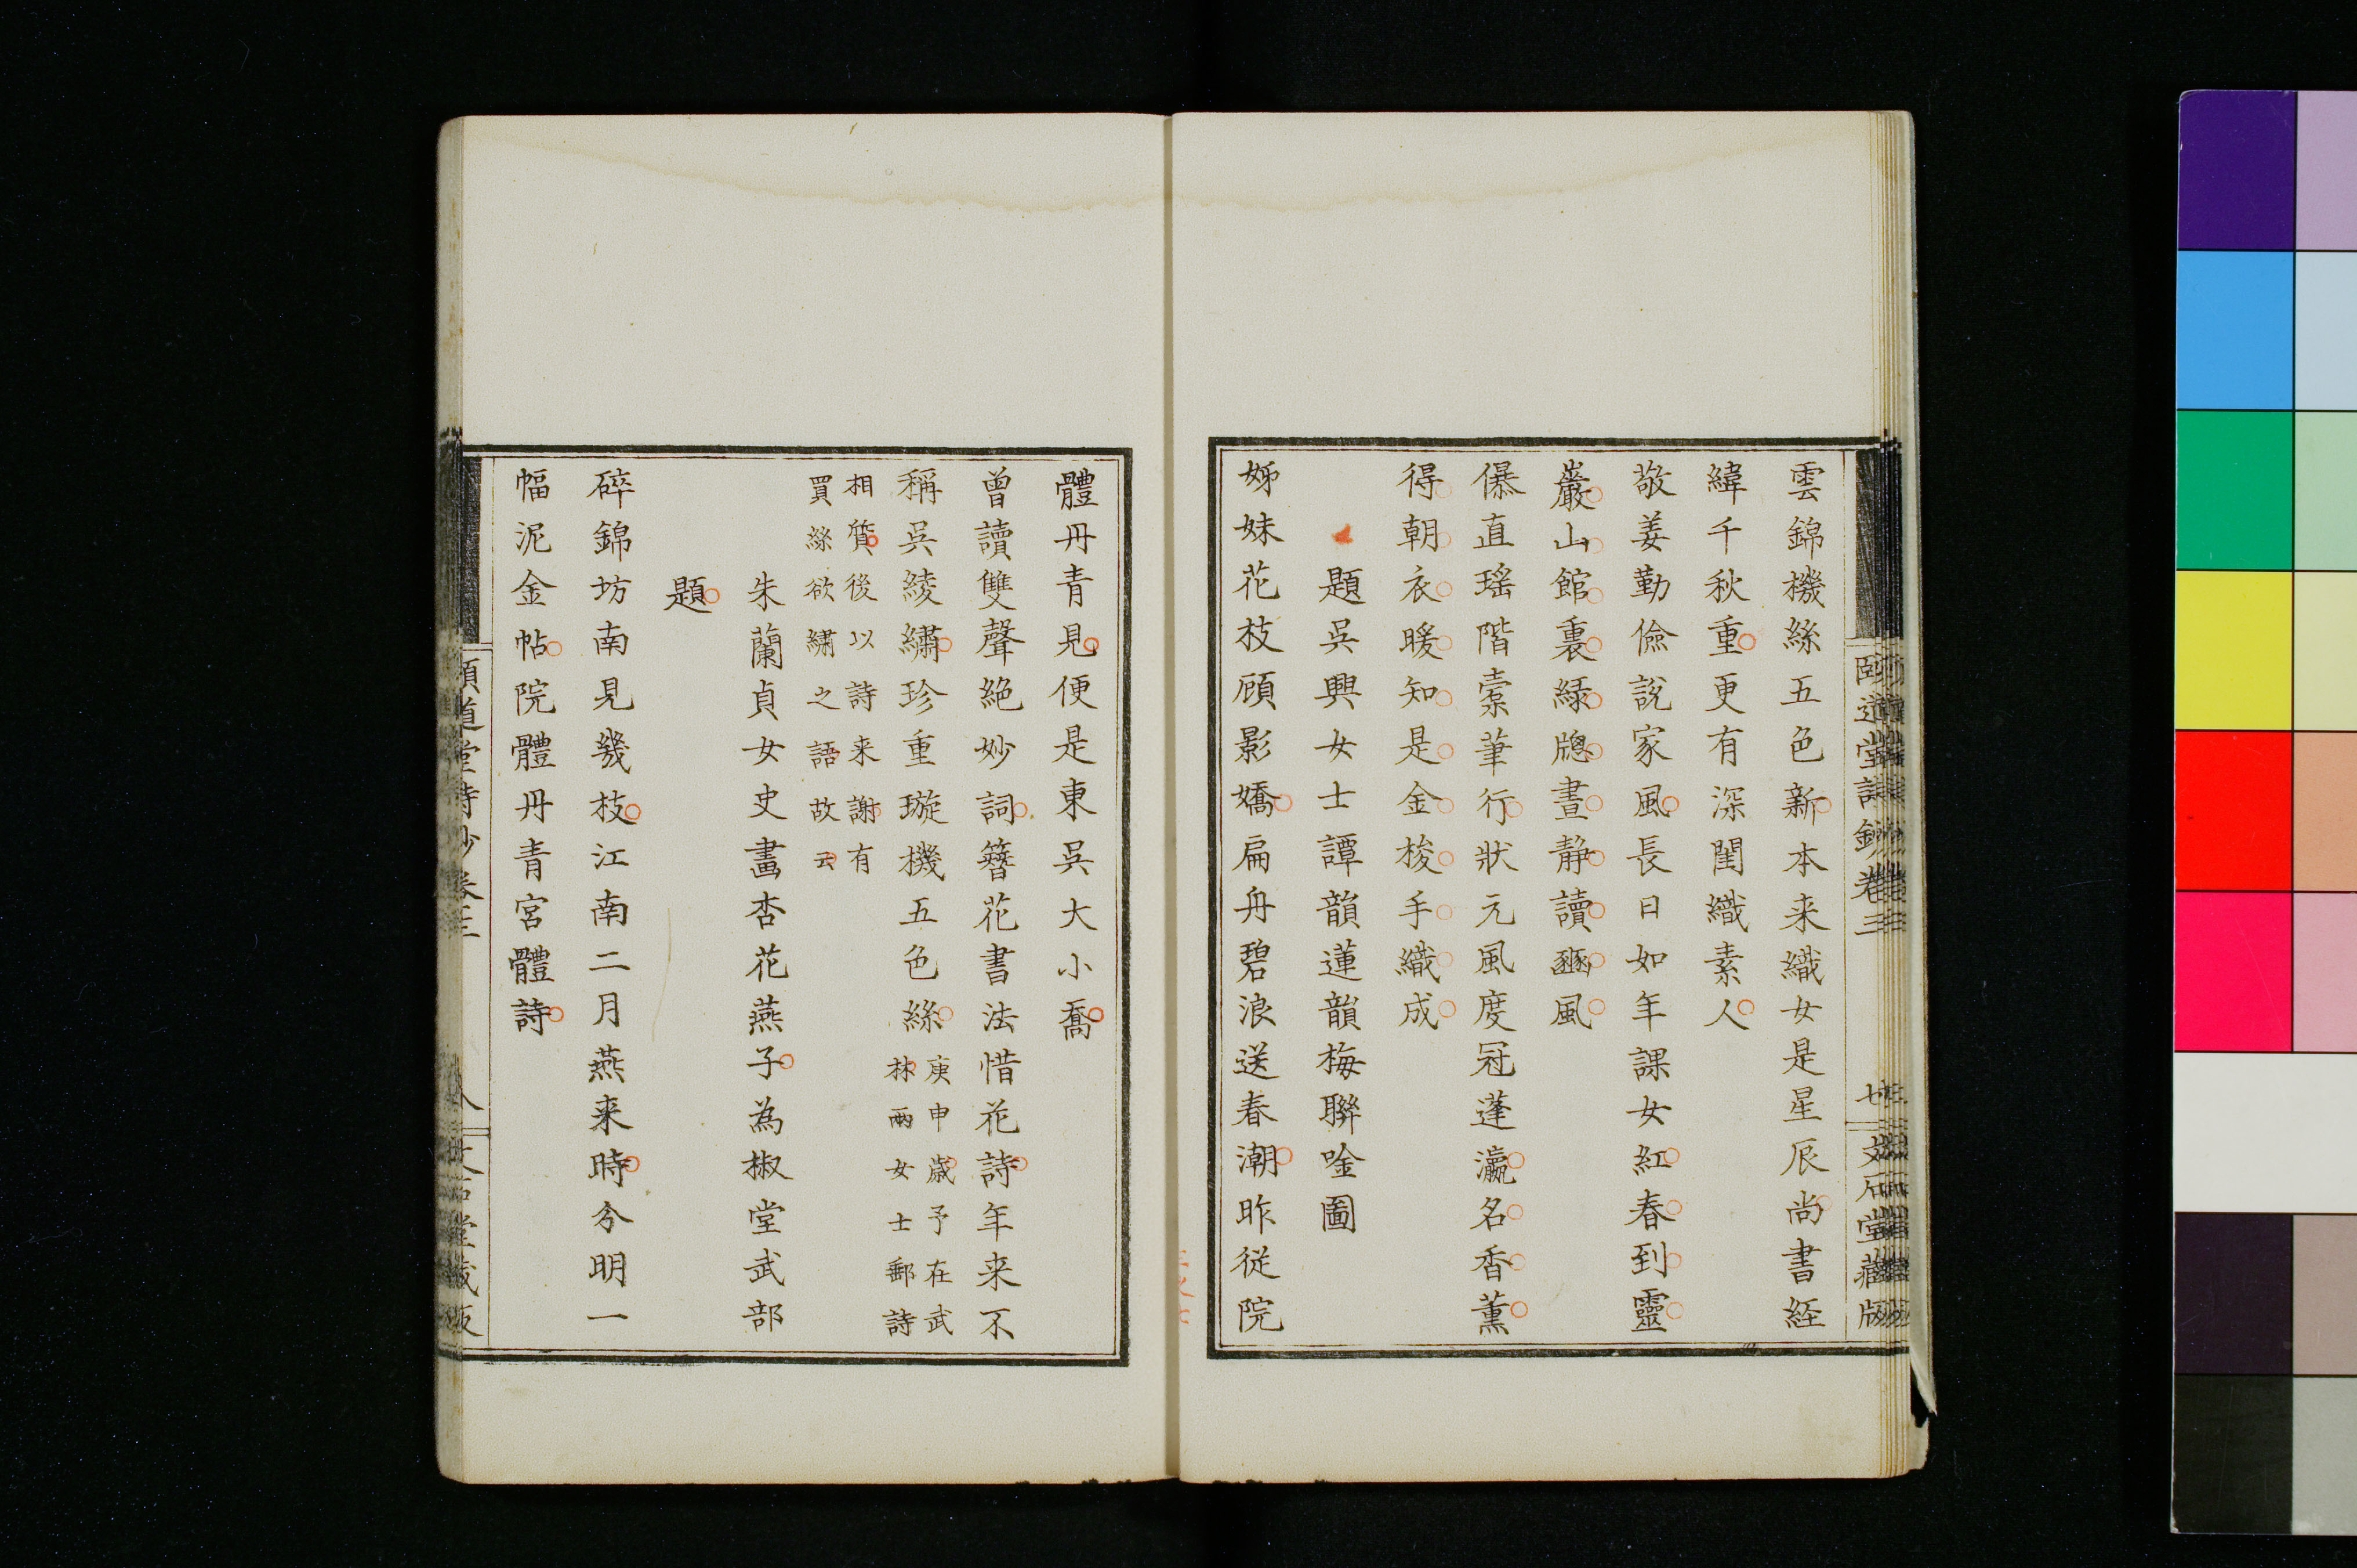 雲錦機絲五色新本来織女是星辰尚書経
緯千秋重更有深閨織素人
敬姜勤儉說家風長日如年課女紅春到靈
巖山館裏緑牕晝静讀豳風
儤直瑤階櫜筆行狀元風度冠蓬瀛名香薰
得朝衣暖知是金梭手織成
題吳興女士譚韻蓮韻梅聯唫圖
姊妹花枝顧影嬌扁舟碧浪送春潮昨從院
體丹青見便是東吳大小喬
曾讀雙聲絶妙詞簪花書法惜花詩年来不
稱吳綾繡珍重璇機五色絲
庚申歲予在武
林兩女士郵詩
相質後以詩来謝有
買絲欲繡之語故云
朱蘭貞女史畫杏花燕子為椒堂武部
題
碎錦坊南見幾枝江南二月燕来時分明一
幅泥金帖院體丹青宮體詩
頤道堂詩鈔卷三
文石堂藏版